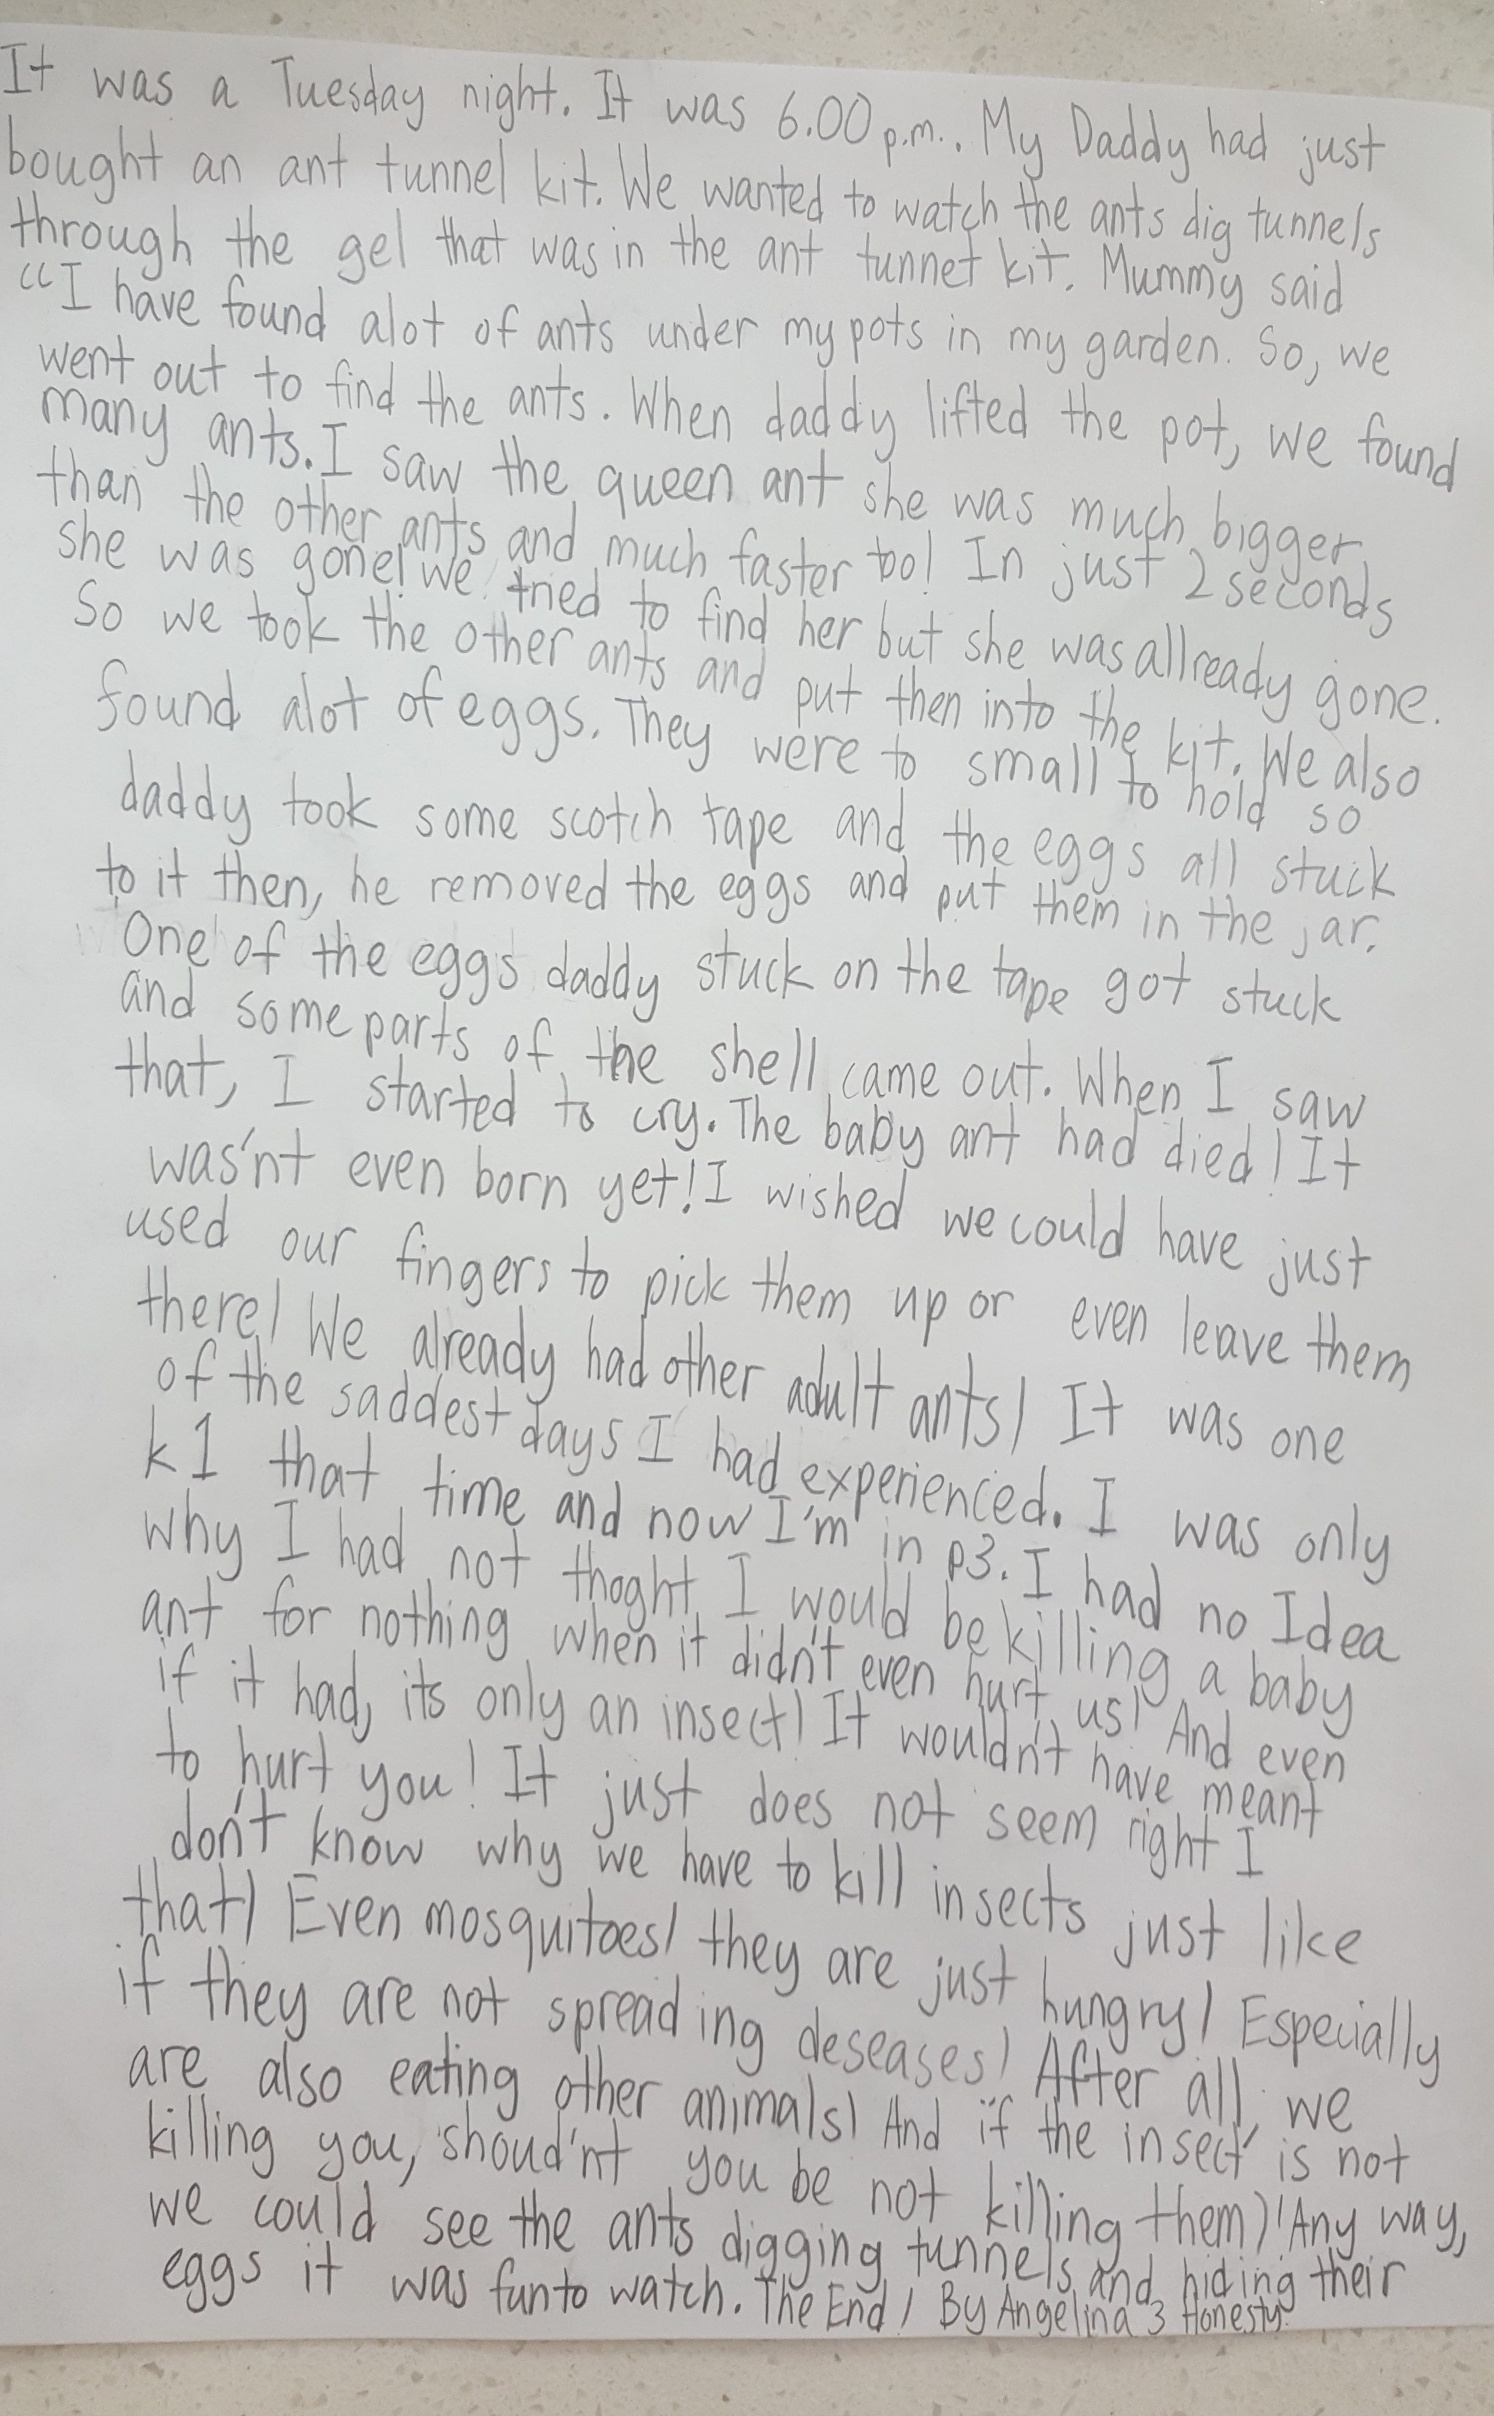 It was a Tuesday night. It was 6.00 p.m.. My Daddy had just
bought an ant tunnel kit. We wanted to watch the ants dig tunnels
through the gel that was in the ant tunnet kit. Mummy said
“I have found alot of ants under my pots in my garden. So, we
went out to find the ants. When daddy lifted the pot, we found
many ants. I saw the queen ant she was much bigger
than the other ants and much faster too! In just 2 seconds
she was gone! we tried to find her but she was allready gone.
So we took the other ants and put then into the kit. We also
found alot of eggs. They were to small to hold so
daddy took some scotch tape and the eggs all stuck
to it then, he removed the eggs and put them in the jar.
One of the eggs daddy stuck on the tape got stuck
and some parts of the shell came out. When I saw
that, I started to cry. The baby ant had died! It
was'nt even born yet! I wished we could have just
used our fingers to pick them up or even leave them
there! We already had other adult ants! It was one
of the saddest days I had experienced. I was only
k1 that time and now I'm in p3. I had no Idea
why I had not thoght I would be killing a baby
ant for nothing when it didn't even hurt us! And even
if it had, its only an insect! It wouldn't have meant
to hurt you! It just does not seem right I
don't know why we have to kill insects just like
that! Even mosquitoes! they are just hungry! Especially
if they are not spreading deseases! After all, we
are also eating other animals! And if the insect is not
killing you, shoud'nt you be not killing them)! Any way,
we could see the ants digging tunnels and hiding their
eggs it was fun to watch. The End! By Angelina 3 Honesty.